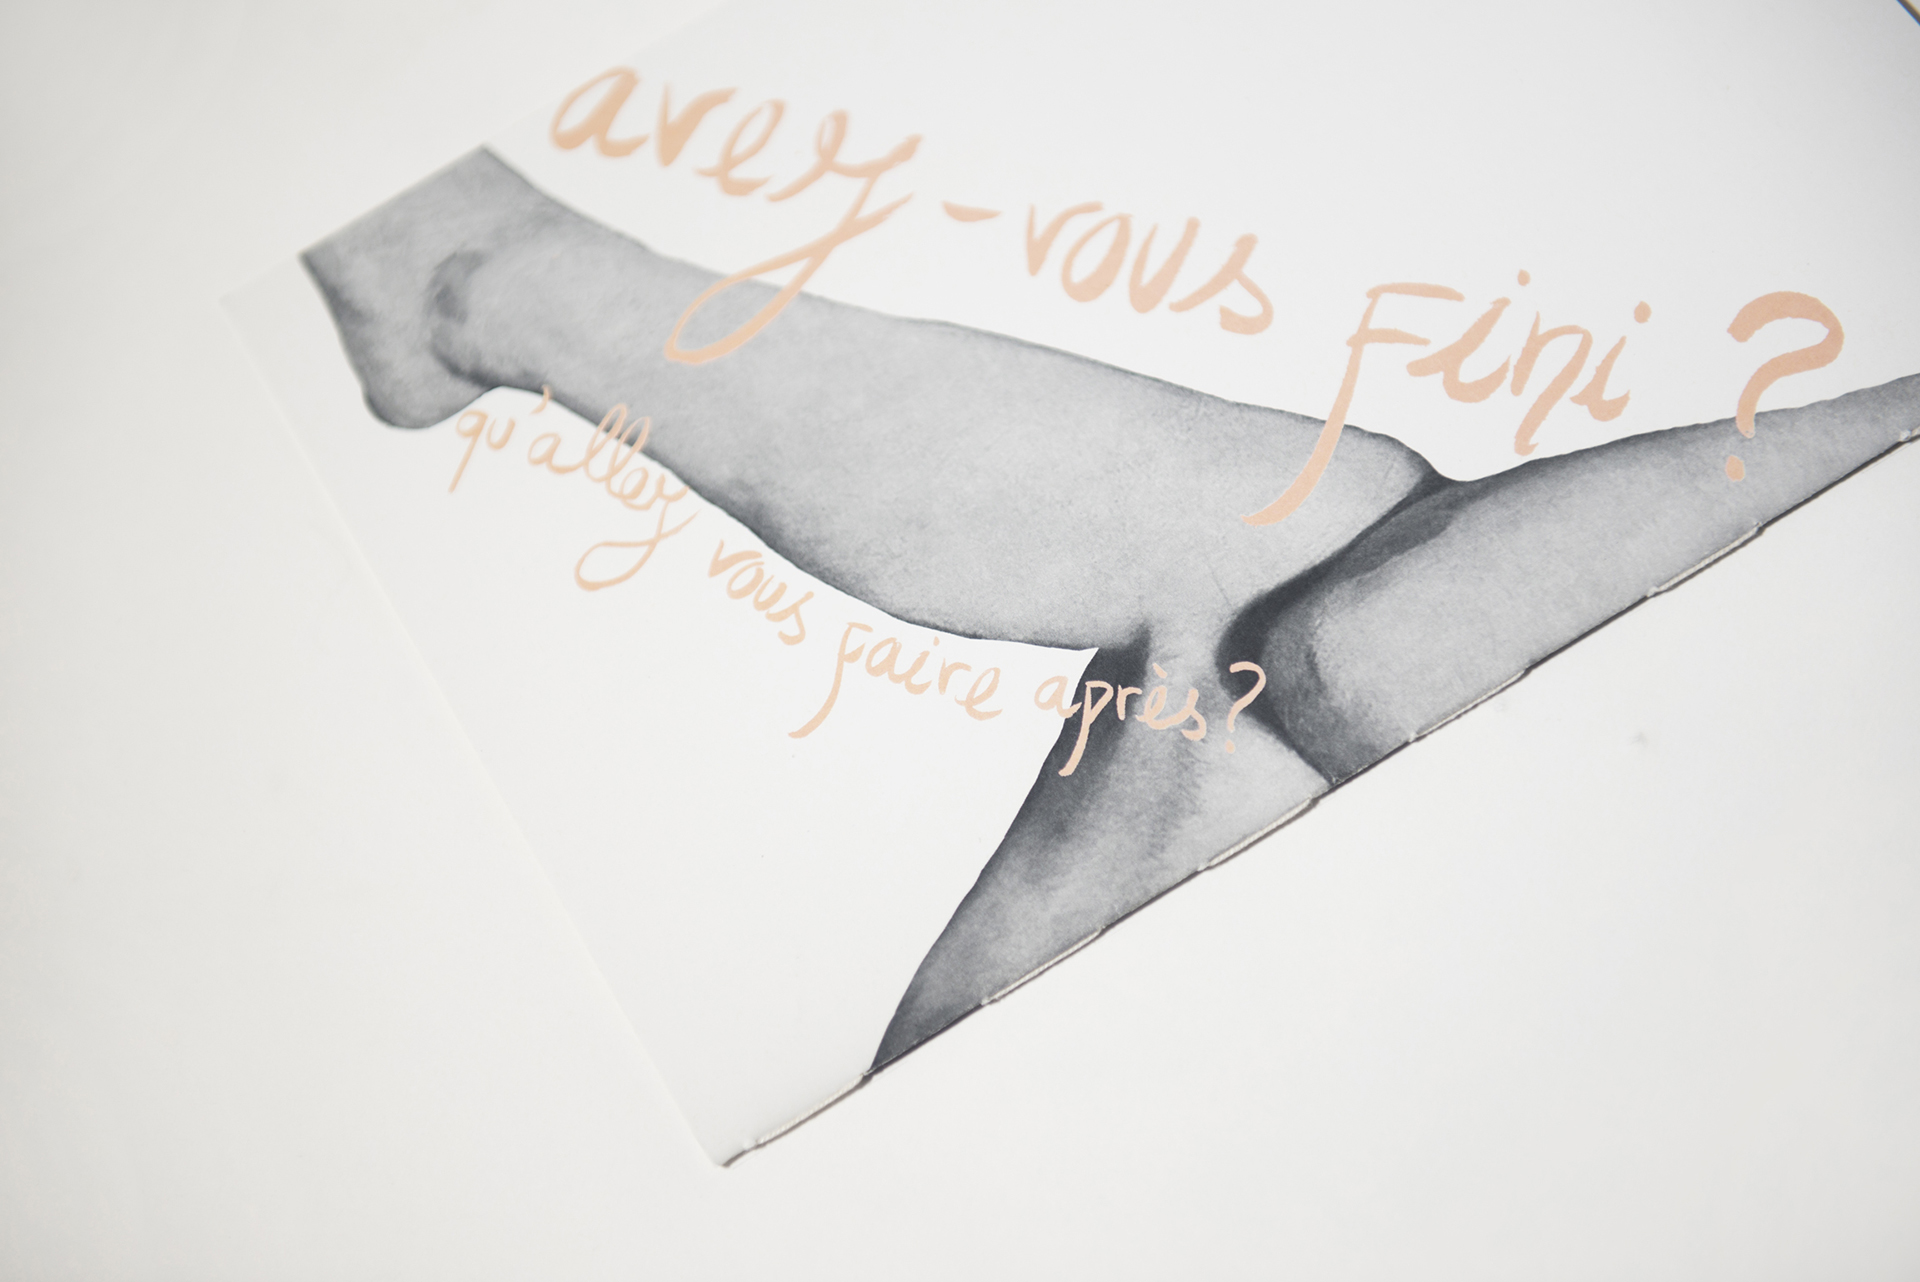 avez-vous fini ?
qu'allez vous faire après?